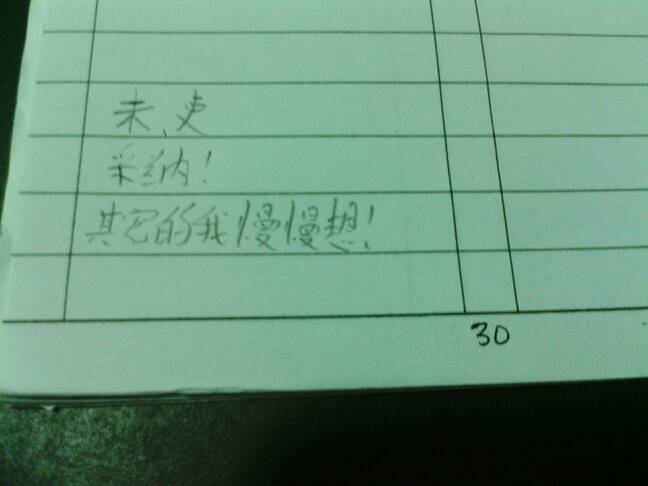 未、吏
采纳!
其它的我慢慢想!
30